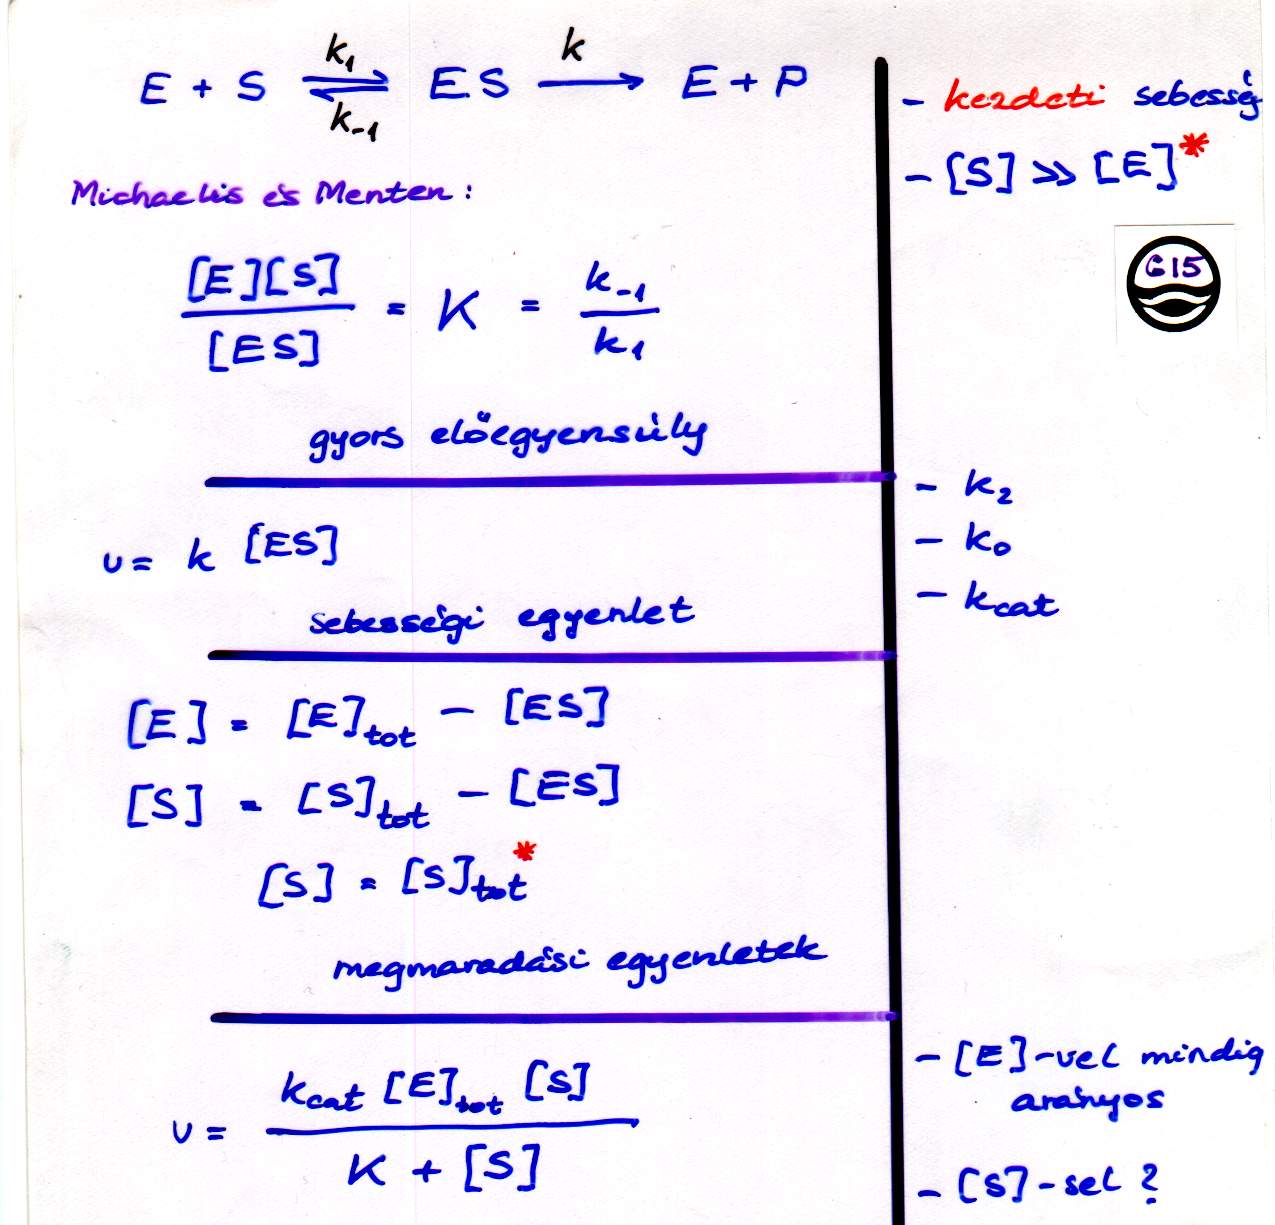 k₁ k
E + S ⇌ ES ⟶ E + P
k₋₁
Michaelis és Menten:
[E][S] / [ES] = K = k₋₁ / k₁
gyors előegyensúly
v = k [ES]
sebességi egyenlet
[E] = [E]tot − [ES]
[S] = [S]tot − [ES]
[S] = [S]tot*
megmaradási egyenletek
v = kcat [E]tot [S] / K + [S]
- kezdeti sebesség
- [S] >> [E]*
C15
- k₂
- k₀
- kcat
- [E]-vel mindig
arányos
- [S]-sel ?